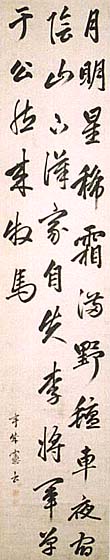 月明星稀霜滿野氈車夜宿
陰山下漢家自失李將軍單
于公然來牧馬